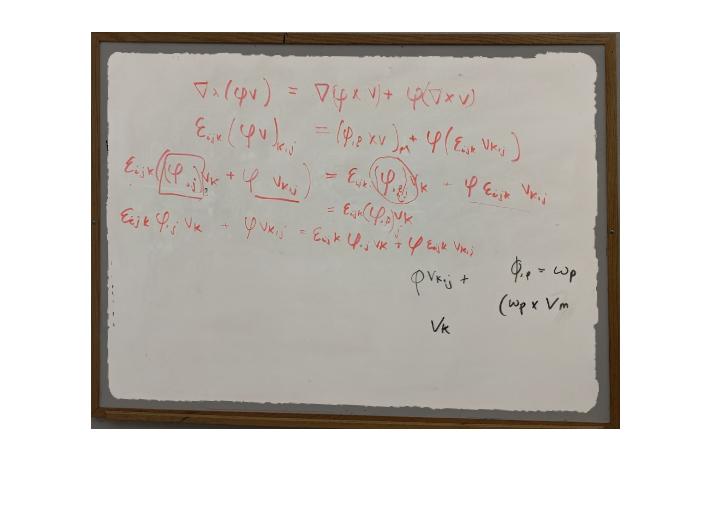 ∇x(φv) = ∇(φ x v) + φ(∇ x v)
εijk(φv)k,j = (φ,p x v)m + φ(εijk vk,j)
εijk((φ,j)vk + φ vk,j) = εijk(φ,p)j vk + φ εijk vk,j
= εijk(φ,p)j vk
εijk φ,j vk + φvk,j = εijk φ,j vk + φ εijk vk,j
φvk,j + φ,p = wp
(wp x Vm
Vk